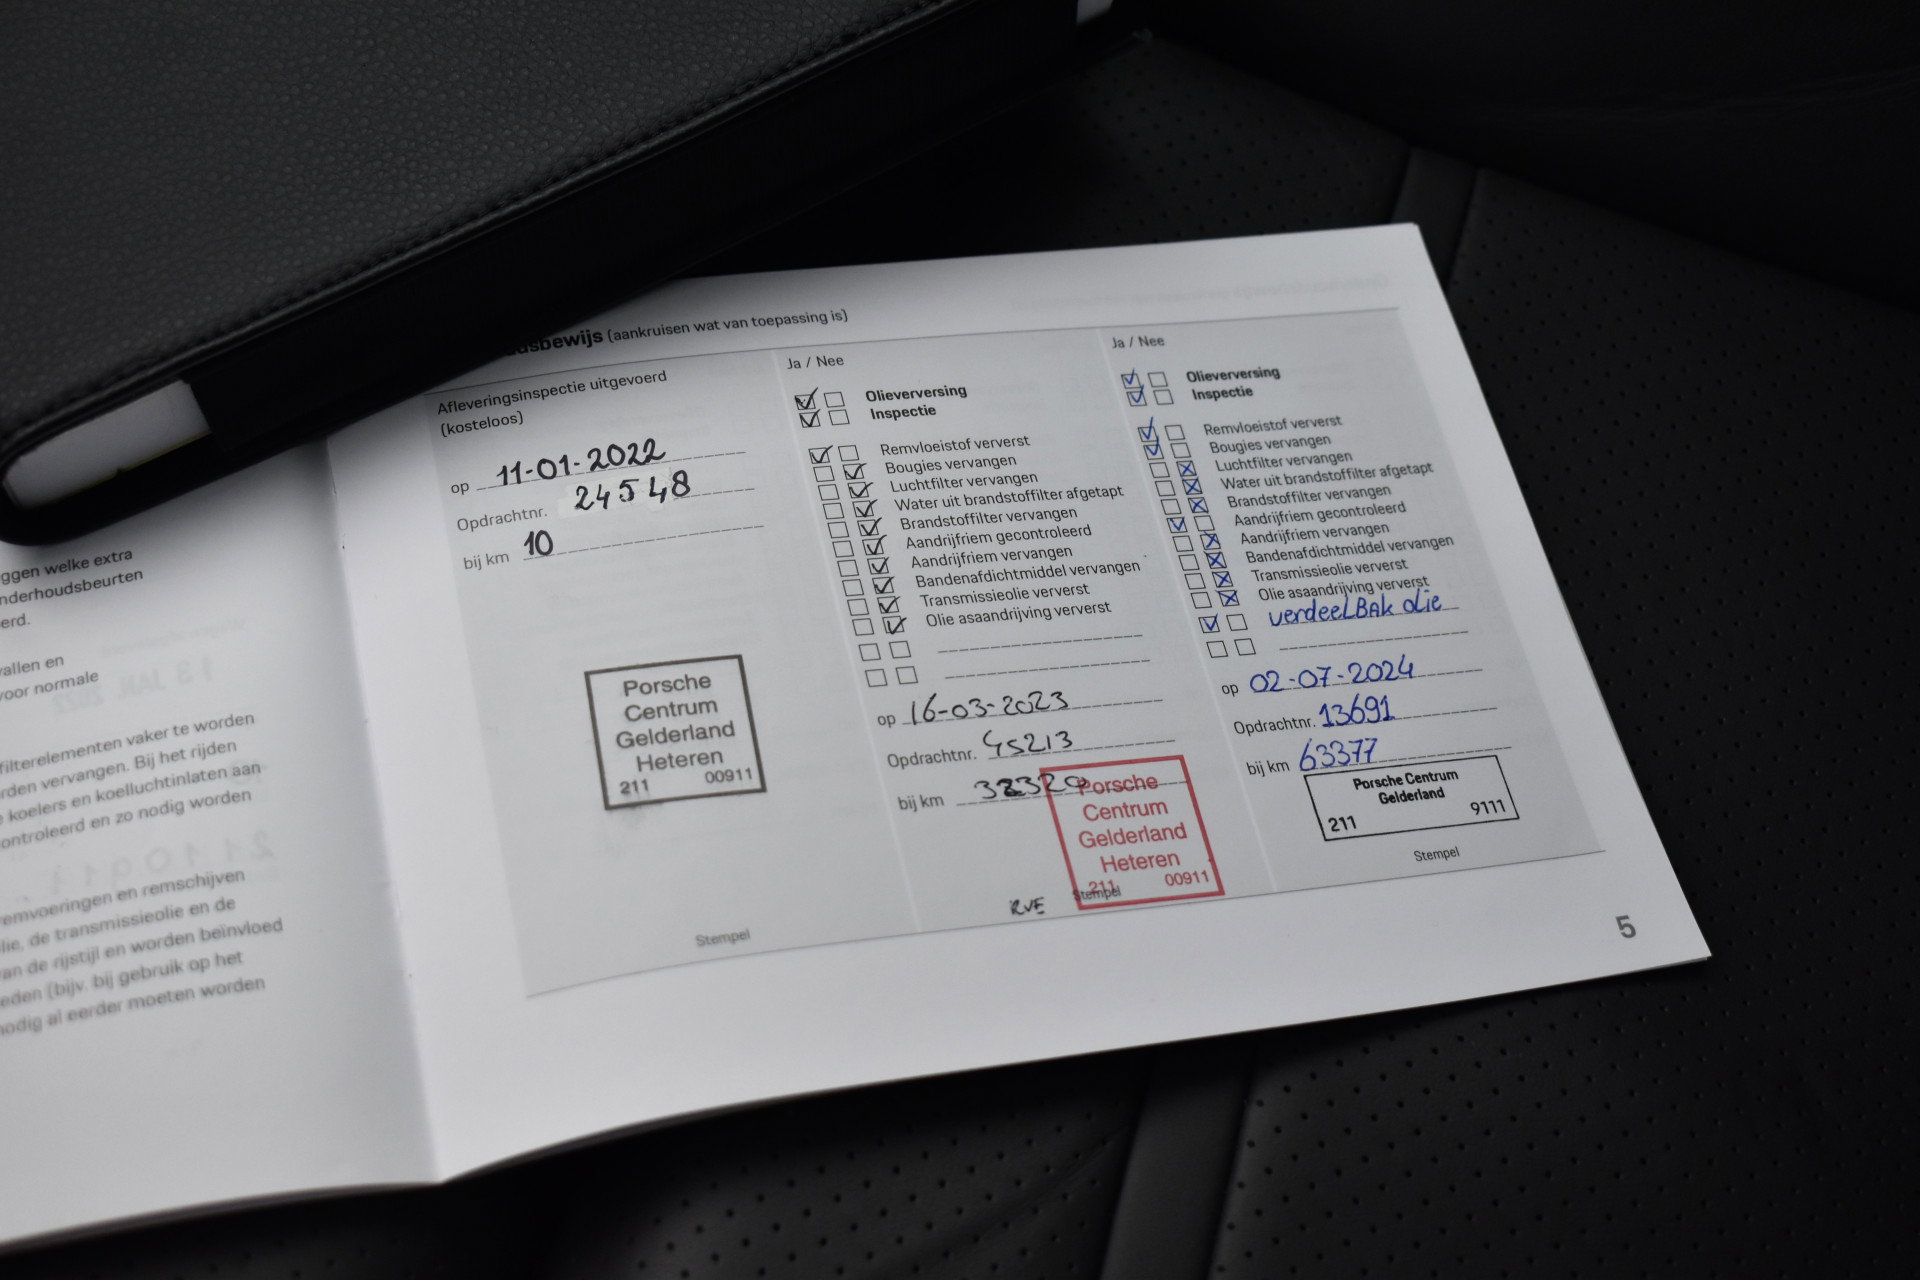 ggen welke extra
nderhoudsbeurten
erd.
vallen en
voor normale
filterelementen vaker te worden
rden vervangen. Bij het rijden
koelers en koelluchtinlaten aan
ontroleerd en zo nodig worden
remvoeringen en remschijven
lie, de transmissieolie en de
an de rijstijl en worden beïnvloed
eden (bijv. bij gebruik op het
nodig al eerder moeten worden
udsbewijs (aankruisen wat van toepassing is)
Afleveringsinspectie uitgevoerd
(kosteloos)
op 11-01-2022
Opdrachtnr. 24548
bij km 10
Porsche
Centrum
Gelderland
Heteren
211 00911
Stempel
Ja / Nee
Olieverversing
Inspectie
Remvloeistof ververst
Bougies vervangen
Luchtfilter vervangen
Water uit brandstoffilter afgetapt
Brandstoffilter vervangen
Aandrijfriem gecontroleerd
Aandrijfriem vervangen
Bandenafdichtmiddel vervangen
Transmissieolie ververst
Olie asaandrijving ververst
op 16-03-2023
Opdrachtnr. 45213
bij km
Porsche
Centrum
Gelderland
Heteren
211 00911
RVE Stempel
Ja / Nee
Olieverversing
Inspectie
Remvloeistof ververst
Bougies vervangen
Luchtfilter vervangen
Water uit brandstoffilter afgetapt
Brandstoffilter vervangen
Aandrijfriem gecontroleerd
Aandrijfriem vervangen
Bandenafdichtmiddel vervangen
Transmissieolie ververst
Olie asaandrijving ververst
verdeelBAk olie
op 02-07-2024
Opdrachtnr. 13691
bij km 63377
Porsche Centrum
Gelderland
211 9111
Stempel
5